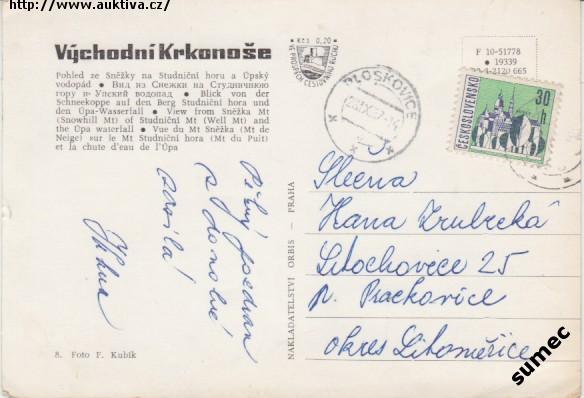 http://www.auktiva.cz/
Východní Krkonoše
Pohled ze Sněžky na Studniční horu a Úpský
vodopád ● Вид из Снежки на Студничную
гору и Упский водопад ● Blick von der
Schneekoppe auf den Berg Studniční hora und
den Úpa-Wasserfall ● View from Sněžka Mt
(Snowhill Mt) of Studniční Mt (Well Mt) and
the Úpa waterfall ● Vue du Mt Sněžka (Mt de
Neige) sur le Mt Studniční hora (Mt du Puit)
et la chute d'eau de l'Úpa
Kčs 0,20
F 10-51778
● 19339
2120 665
PLOSKOVICE
ČESKOSLOVENSKO
30
h
Pěkný pozdrav
z dovolené
zasílá
NAKLADATELSTVÍ ORBIS — PRAHA
Slečna
Hana
Litochovice 25
p. Prackovice
okres Litoměřice
8. Foto F. Kubík
sumec